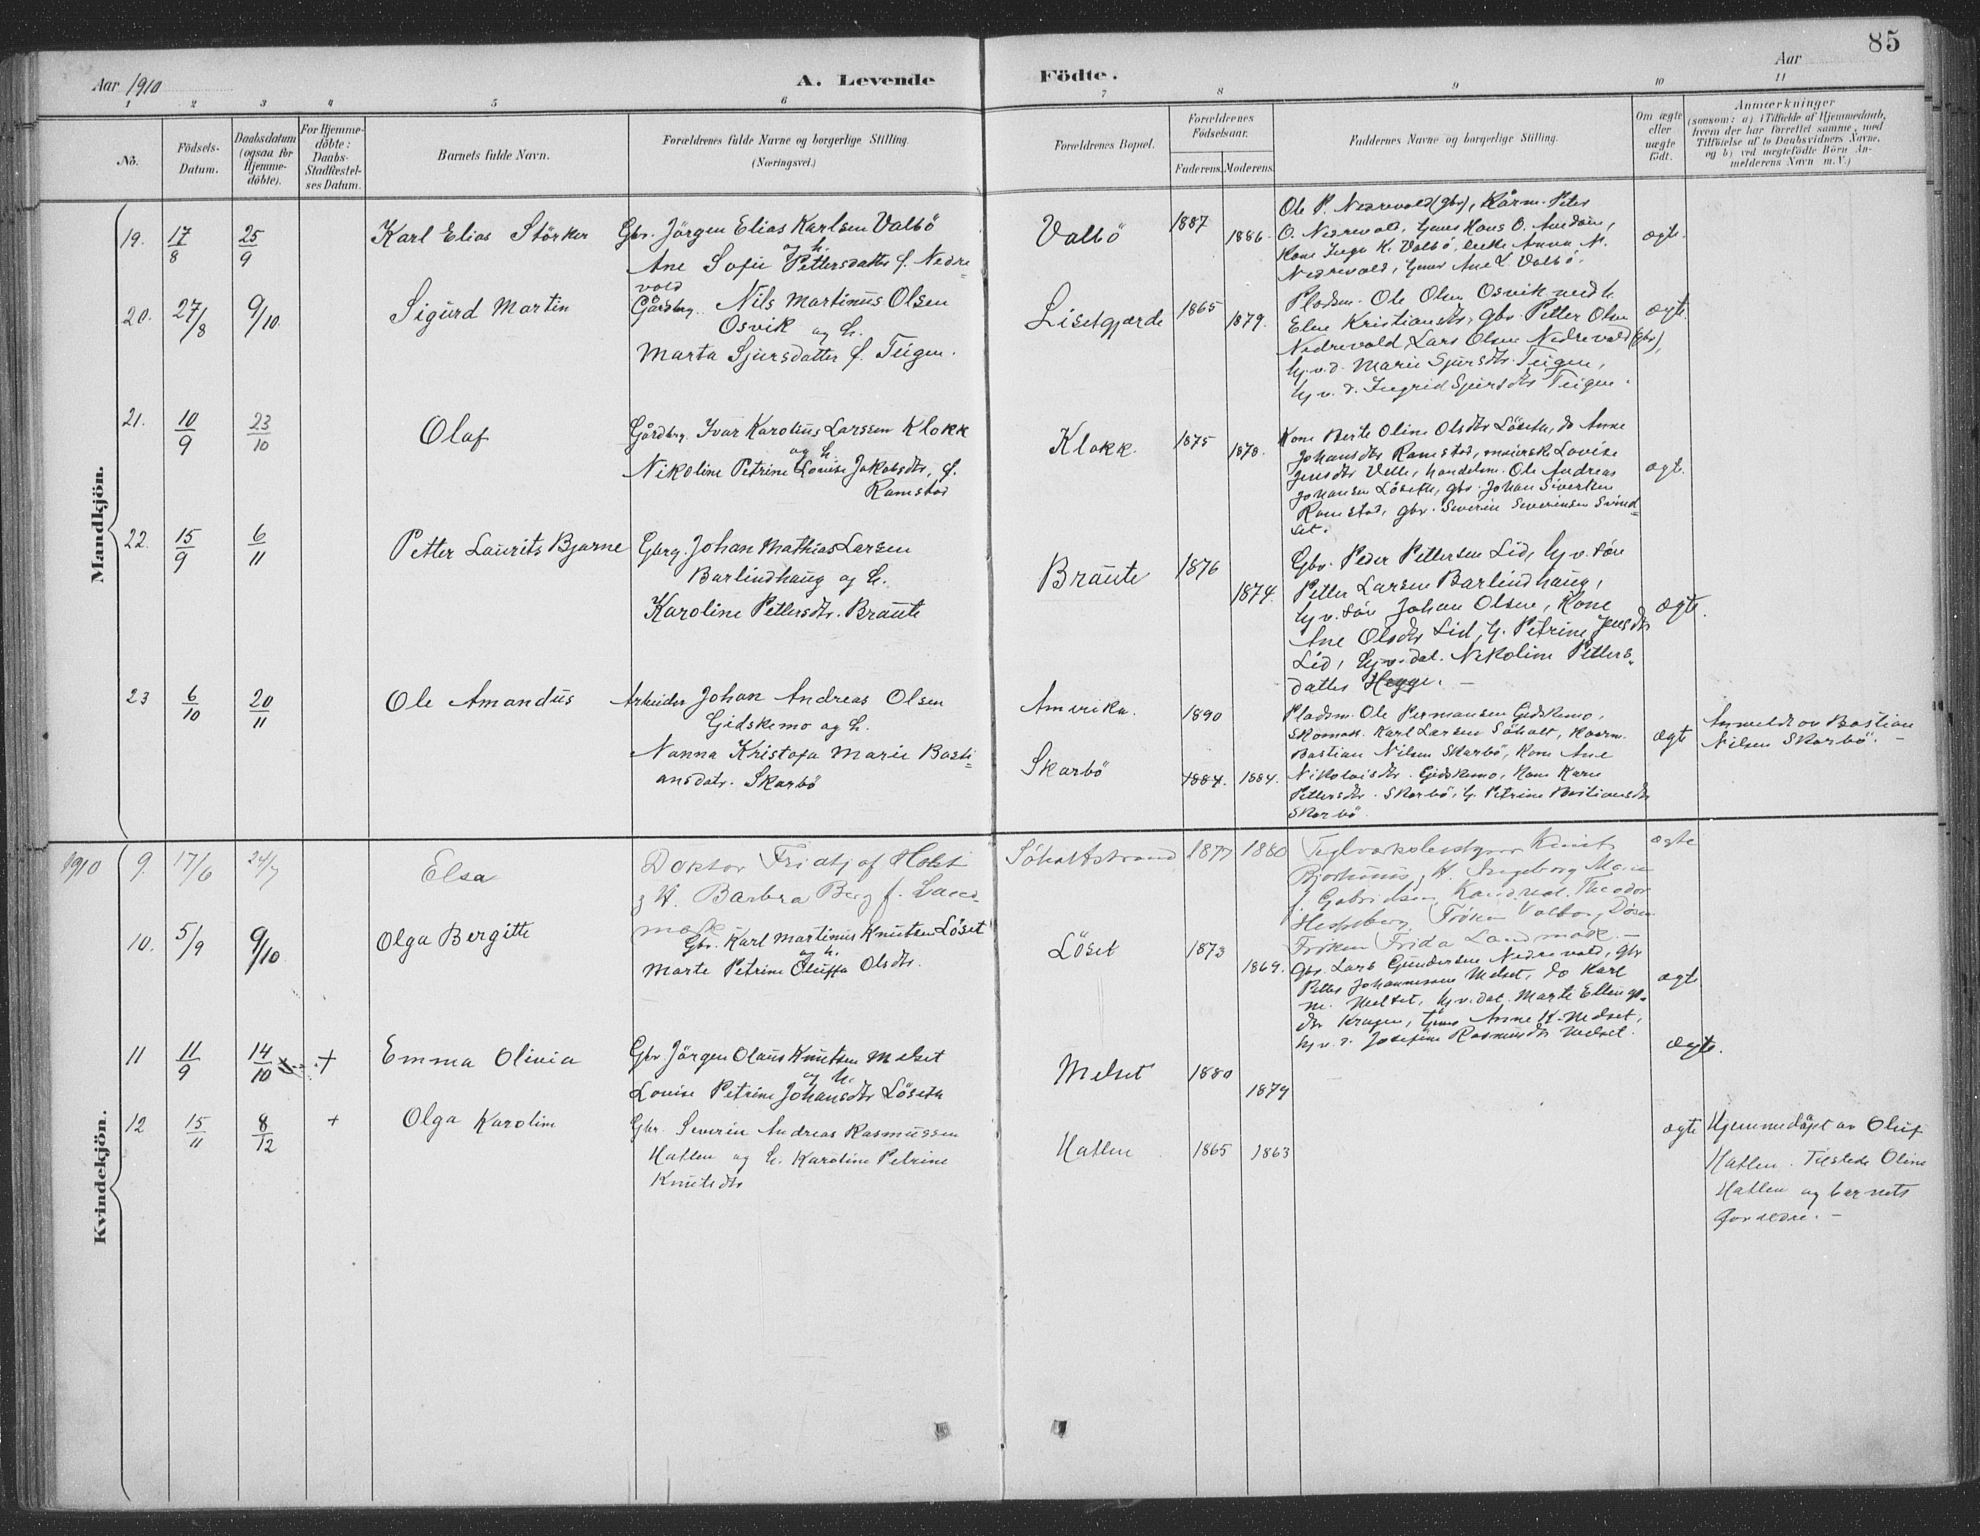 85
Aar 1910
A. Levende
Födte.
Aar
1 2 3 4 5 6 7 8 9 10 11
No.
Födsels-
Datum.
Daabsdatum
(ogsaa for
Hjemme-
döbte).
For Hjemme-
döbte:
Daabs-
Stadfæstel-
ses Datum.
Barnets fulde Navn.
Forældrenes fulde Navne og borgerlige Stilling.
(Næringsvei.)
Forældrenes Bopæl.
Forældrenes
Födselsaar.
Faderens. Moderens.
Faddernes Navne og borgerlige Stilling.
Om ægte
eller
uægte
födt.
Anmærkninger
(saasom: a) i Tilfælde af Hjemmedaab,
hvem der har forrettet samme, med
Tilföielse af to Daabsvidners Navne,
og b) ved uægtefödte Börn An-
melderens Navn m. V.)
Mandkjön.
19. 17/8 25/9
Karl Elias Störker
Gbr. Jörgen Elias Karlsen Valbö
h.
Ane Sofie Pettersdatter f. Nedre=
vold
Valbö
1887
1886.
Ole P. Nedrevold (gbr), Kårm. Peter
O. Nedrevold, Hans O.
Kone Inga K. Valbö, Anna M.
Nedrevold, Ane L. Valbö.
ægte.
20. 27/8 9/10.
Sigurd Martin
Gårdbrg. Nils Martinus Olsen
Osvik og h.
Marta Sjursdatter f. Teigen.
Lisetgjærde
1865
1879.
Pladsm. Ole Olsen Osvik med h.
Elene Kristiansdtr, gbr. Petter Olsen
Nedrevold, Lars Olsen Nedrevold (gbr),
hj.v.d. Marie Sjursdtr. Teigen,
hj.v.d. Ingrid Sjursdtr Teigen.
ægte.
21. 10/9 23/10
Olaf
Gårdbrg. Ivar Karolius Larssen Klokk
og h.
Nikoline Petrine Lovise Jakobsdtr, f.
Ramstad
Klokk.
1875
1878.
Kone Berte Oline Olsdtr Löseth, do Anne
Johansdtr Ramstad, meierske Lovise
Jensdtr Velle, handelsm. Ole Andreas
Johansen Löseth, gbr. Johan Sivertsen
Ramstad, gbr. Severin Severinsen Svind=
set.
ægt.
22. 15/9 6/11
Petter Laurits Bjarne
Gbrg. Johan Mathias Larsen
Barlindhaug og h.
Karoline Pettersdtr. Braute
Braute
1876
1874.
Gbr. Peder Pettersen Lid, hj.v. sön
Petter Larsen Barlindhaug,
hj.v. sön Johan Olsen, Kone
Ane Olsdtr Lid, h. Petrine Jensdtr
Lid, hj.v.dat. Nikoline Petters-
datter Hegge. —
ægte.
23 6/10 20/11
Ole Amandus
Arbeider Johan Andreas Olsen
Gidskemo og h.
Nanna Kristofa Marie Basti-
ansdatr. Skarbö
Amerika.
Skarbö
1890
1884. 1884.
Pladsm. Ole Permansen Gidskemo,
Skomak. Karl Larsen Söholt, Kaarm.
Bastian Nilsen Skarbö, Kone Ane
Nikolaisdtr. Gidskemo, Kone Karen
Pettersdtr. Skarbö, h. Petrine Bastiansdtr
Skarbö.
ægt
Anmeldt av Bastian
Nilsen Skarbö. —
Kvindekjön.
1910 9. 17/6 24/7
Elsa
Doktor Fridtjof Holst
og H. Barbra Berg f. Land-
mark
Söholtstrand 1877 1880
Teglverksbestyrer Knut
Bjorhuus, H. Ingeborg Marie
f. Gabrielsen, Kand.real. Theodor
Hesselberg, Fröken Valborg
Fröken Frida Landmark. —
ægte
10. 5/9 9/10
Olga Bergitte
Gbr. Karl Martinus Knutsen Löset
og h.
Marte Petrine Oluffa Olsdtr.
Löset
1873
1869.
Gbr. Lars Gundersen Nedrevold, gbr
Petter Johannessen Melset, do Karl
M. Melset, hj.v.dat. Marte Ellings-
dtr Kragen, Anne K. Melset,
hj.v.d. Josefine Rasmusdtr Melset.
ægt
11 11/9 14/10 +
Emma Olivia
Gbr Jörgen Olaus Knutsen Melset
og h.
Lovise Petrine Johansdtr Löseth
Melset
1880
1879
ægte.
12 15/11 8/12 +
Olga Karoline
Gbr. Severin Andreas Rasmussen
Hatlen og h. Karoline Petrine
Knutsdtr
Hatlen
1865 1863
ægte
Hjemmedöpt av Oluf
Hatlen. Tilstede Oline
Hatlen og barnets
foreldre. —